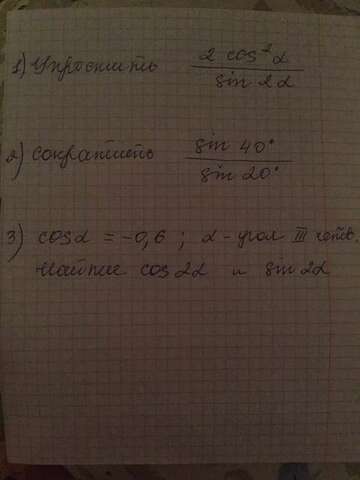 1) Упростить 2 cos²α / sin 2α
2) Сократить sin 40° / sin 20°
3) cosα = -0,6 ; α - угол III четв.
Найдите cos2α и sin 2α